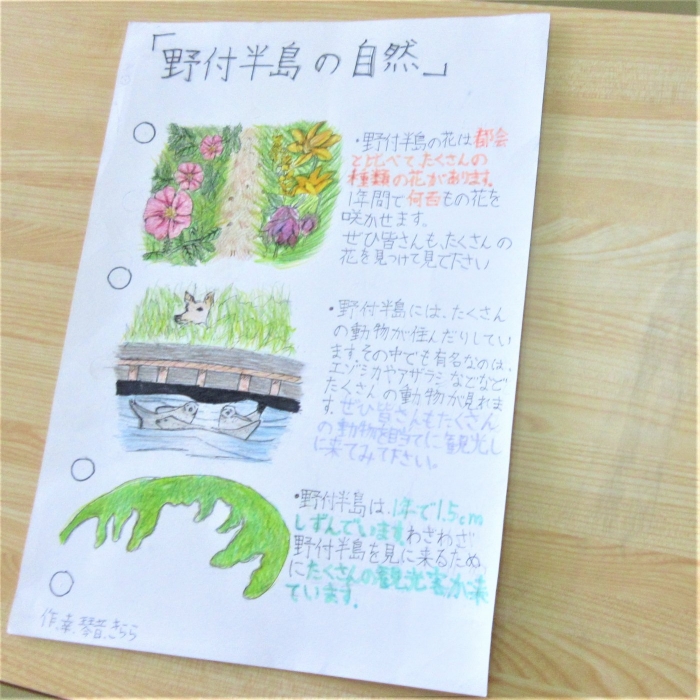 「野付半島の自然」
・野付半島の花は都会
と比べてたくさんの
種類の花があります。
1年間で何百もの花を
咲かせます。
ぜひ皆さんも、たくさんの
花を見つけて見で下さい
・野付半島には、たくさん
の動物が住んだりしてい
ます。その中でも有名なのは、
エゾシカやアザラシなどなど
たくさんの動物が見れま
す。ぜひ皆さんもたくさん
の動物を目当てに観光し
に来てみて下さい。
・野付半島は、1年で1.5cm
しずんでいます。わざわざ
野付半島を見に来るため
にたくさんの観光客が来
ています。
作.幸.琴音.きらら